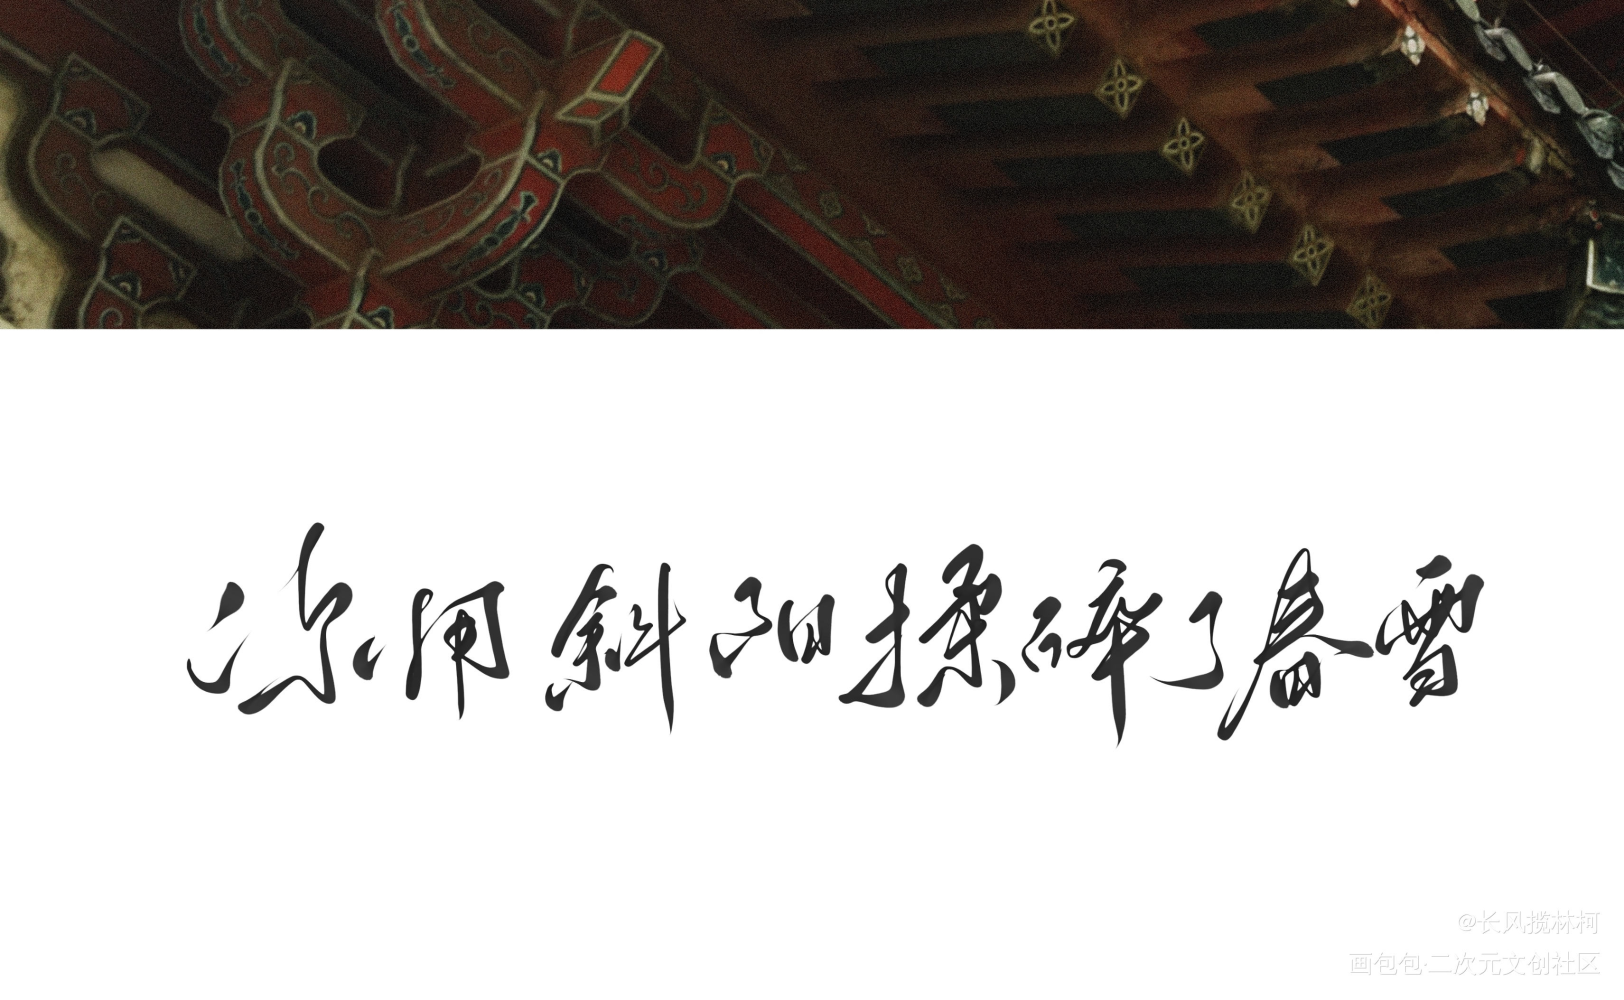 用斜阳揉碎了春雪
@长风揽林柯
画包包·二次元文创社区